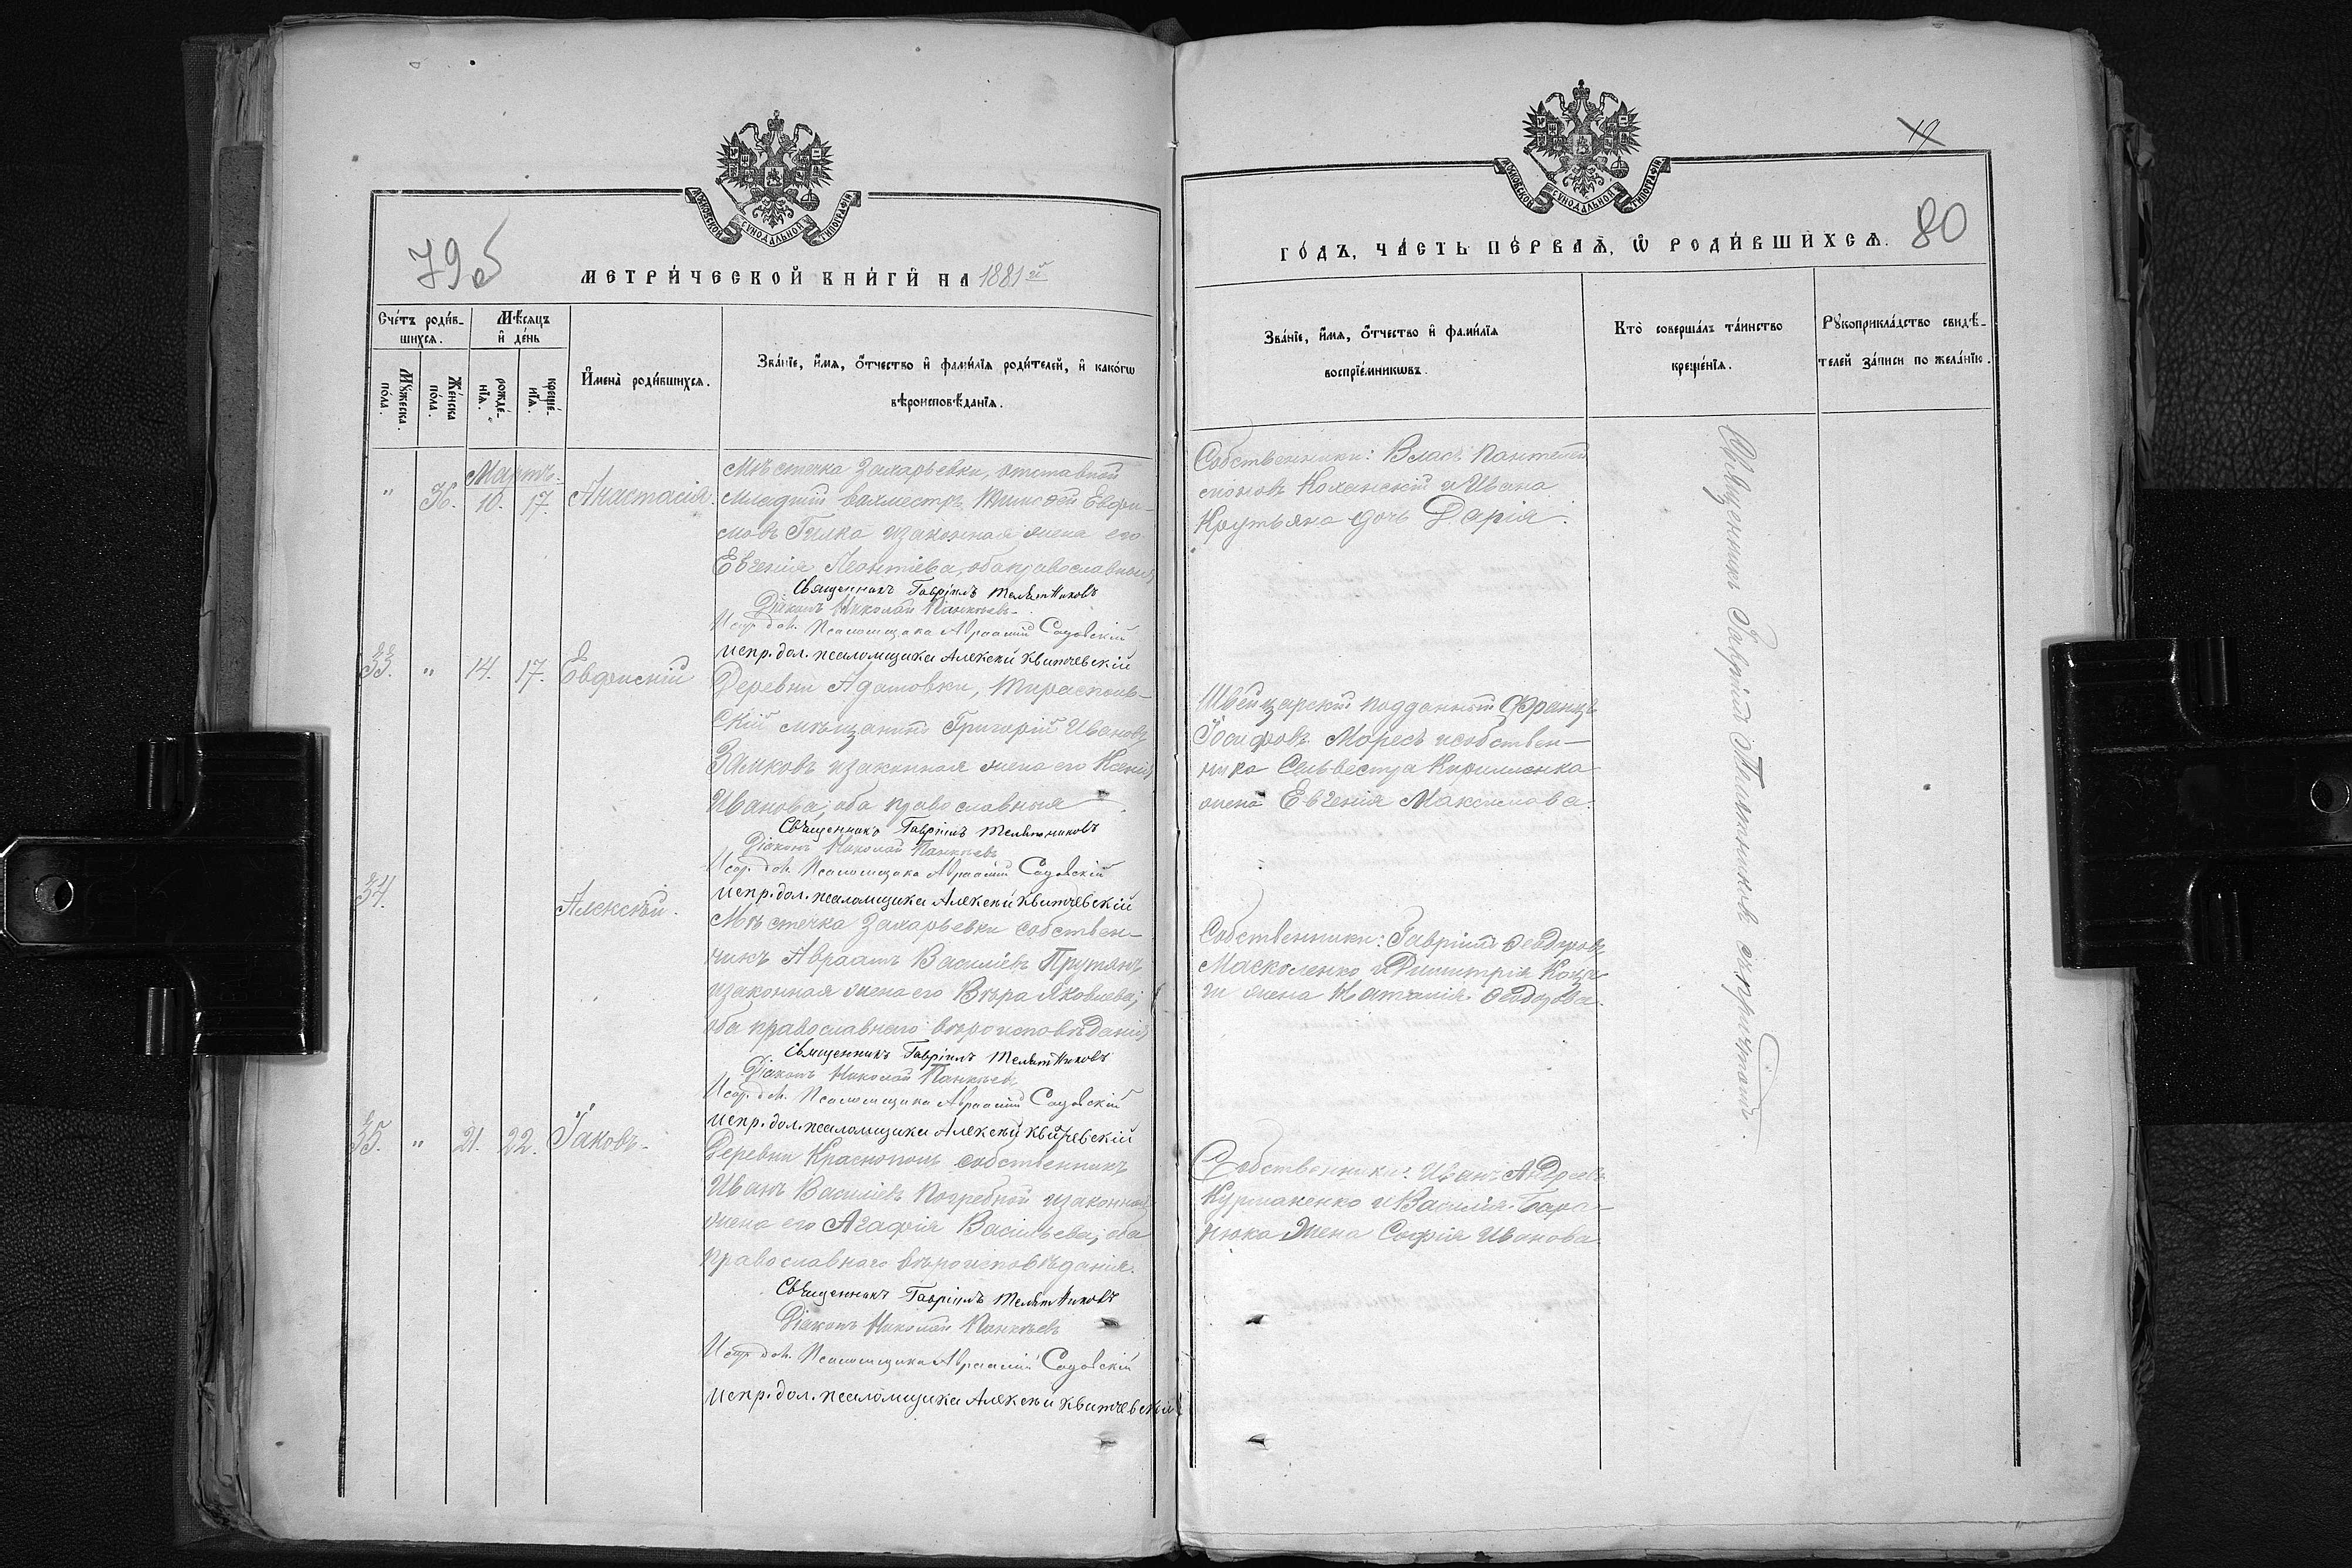 МОСКОВСКОЙ СУНОДАЛЬНОЙ ТИПОГРАФІИ
79об
МЕТРИ́ЧЕСКОЙ КНИ́ГИ НА 1881й
Сче́тъ роди́в-
шихся.
Мѣ́сяцъ
и҆ де́нь
Мꙋ́жеска
по́ла.
Же́нска
по́ла.
рожде́-
нїѧ.
креще́-
нїѧ.
И҆мена̀ роди́вшихсѧ.
Зва́нїе, и҆́мѧ, ѻ҆́тчество и҆ фами́лїѧ роди́телей, и҆ како́гѡ
вѣроисповѣ́данїѧ.
Мартъ.
" Ж. 10. 17. Анастасія.
Мѣстечка Захарьевки, отставной
младшій вахместръ Тимофей Евфи-
мовъ Гилка и законная жена его
Евгенія Леонтіева, оба православныя
Священникъ Гавріилъ Мельтниковъ
Діаконъ Николай Панкѣевъ
Испр. дол. Псаломщика Авраамій Садовскій
испр. дол. псаломщика Алексѣй Квитчевскій
33. " 14. 17. Евфимій
Деревни Адамовки, Тирасполь-
скій мѣщанинъ Григорій Ивановъ
Замковъ и законная жена его Ксенія
Иванова, оба православныя
Священникъ Гавріилъ Мельтниковъ
Діаконъ Николай Панкѣевъ
Испр. дол. Псаломщика Авраамій Садовскій
испр. дол. псаломщика Алексѣй Квитчевскій
34. Алексѣй.
Мѣстечка Захарьевки собствен-
никъ Авраамъ Василіевъ Прутянъ
и законная жена его Вѣра Яковлева;
оба православнаго вѣроисповѣданія
Священникъ Гавріилъ Мельтниковъ
Діаконъ Николай Панкѣевъ
Испр. дол. Псаломщика Авраамій Садовскій
испр. дол. псаломщика Алексѣй Квитчевскій
35. " 21. 22. Іаковъ.
Деревни Краснополь собственникъ
Иванъ Василіевъ Погребной и законная
жена его Агафія Васильева; оба
православнаго вѣроисповѣданія.
Священникъ Гавріилъ Мельтниковъ
Діаконъ Николай Панкѣевъ
Испр. дол. Псаломщика Авраамій Садовскій
испр. дол. псаломщика Алексѣй Квитчевскій
МОСКОВСКОЙ СУНОДАЛЬНОЙ ТИПОГРАФІИ
19
80
ГО́ДЪ, ЧА́СТЬ ПЕ́РВАѦ, Ѡ҆ РОДИ́ВШИХСѦ.
Зва́нїе, и҆́мѧ, ѻ҆́тчество и҆ фами́лїѧ
воспрїе́мникѡвъ.
Кто̀ соверша́лъ та́инство
креще́нїѧ.
Рꙋкоприкла́дство свидѣ́-
телей за́писи по жела́нїю.
Собственники: Власъ Пантелей
моновъ Коханскій и Ивана
Крутьяна дочь Дарія.
Швейцарскій подданный Францъ
Іосифовъ Моресъ и собствен-
ника Сильвестра Кириленка
жена Евгенія Максимова.
Собственники: Гавріилъ Ѳеодоровъ
Масколенко и Димитрія
жена Наталія Ѳеодорова.
Собственники: Иванъ Андреевъ
Курманенко и Василія Бара-
нюка жена Софія Иванова.
Священникъ Гавріилъ съ причтомъ.